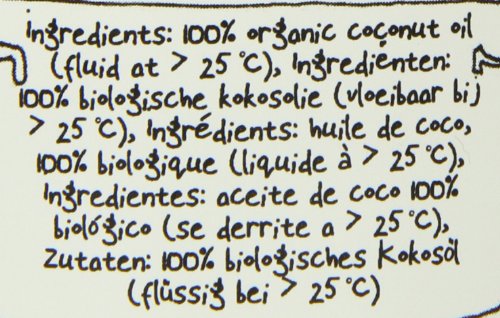 ingredients: 100% organic coconut oil
(fluid at > 25 °C), Ingrediënten:
100% biologische kokosolie (vloeibaar bij
> 25 °C), Ingrédients: huile de coco,
100% biologique (liquide à > 25 °C),
Ingredientes: aceite de coco 100%
biológico (se derrite a > 25 °C),
Zutaten: 100% biologisches Kokosöl
(flüssig bei > 25 °C)